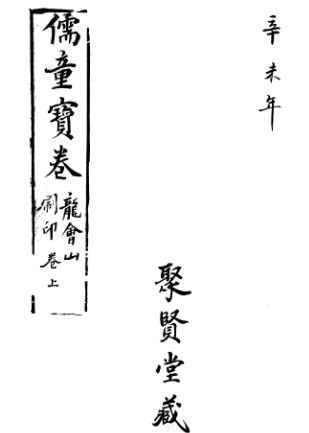 辛未年
聚賢堂藏
儒童寶卷
龍會山
刷印
卷上